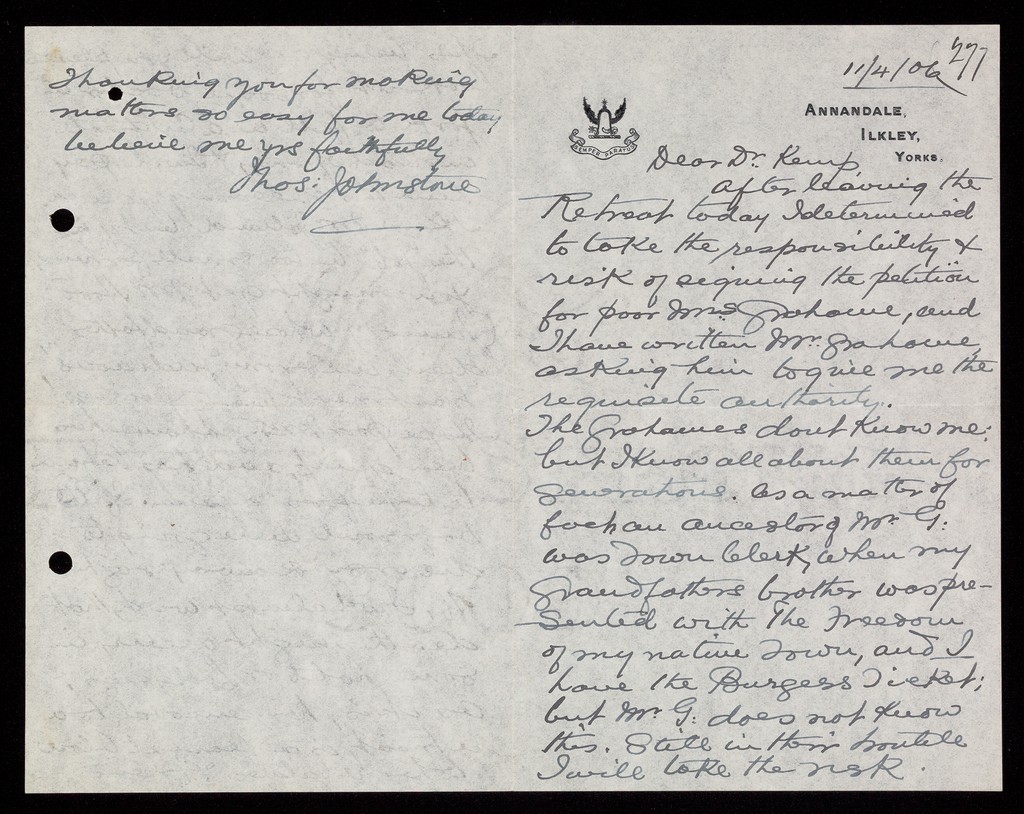 277
11/4/06
ANNANDALE,
ILKLEY,
YORKS.
SEMPER PARATUS
Dear Dr. Kemp,
After leaving the
Retreat today I determined
to take the responsibility &
risk of signing the petition
for poor Mrs Grahame, and
I have written Mr. Grahame,
asking him to give me the
requisite authority.
The Grahames dont know me:
but I know all about them for
generations. As a matter of
fact an ancestor of Mr. G:
was Town Clerk, when my
Grandfathers brother was pre-
sented with The Freedom
of my native Town, and I
have the Burgess Ticket;
but Mr. G: does not know
this. Still in their trouble
I will take the risk.
Thanking you for making
matters so easy for me today
believe me yrs faithfully
Thos: Johnstone